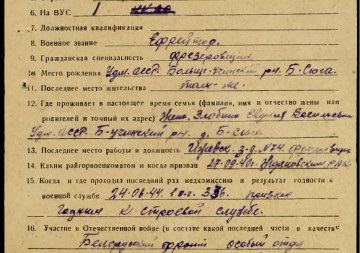 6. На ВУС 1
7. Должностная квалификация
8. Военное звание Ефрейтор.
9. Гражданская специальность фрезеровщик
10. Место рождения Удм. АССР Больше-Учинский рн. Б-Сюга
11. Последнее место жительства там-же.
12. Где проживает в настоящее время семья (фамилия, имя и отчество жены или
родителей и точный их адрес) Жена Злобина Евдокия Васильевна
Удм. АССР. Б-Учинский рн. д. Б-Сюга
13. Последнее место работы и должность Ижевск. з-д. №74.
14. Каким райгорвоенкоматом и когда призван 27.09.40г. РВК.
15. Когда и где проходил последний раз медкомиссию и результат годности к
военной службе 24.06.44. призван
годным к строевой службе.
16. Участие в Отечественной войне (в составе какой последней части в качестве
Белорусский фронт особый отдел